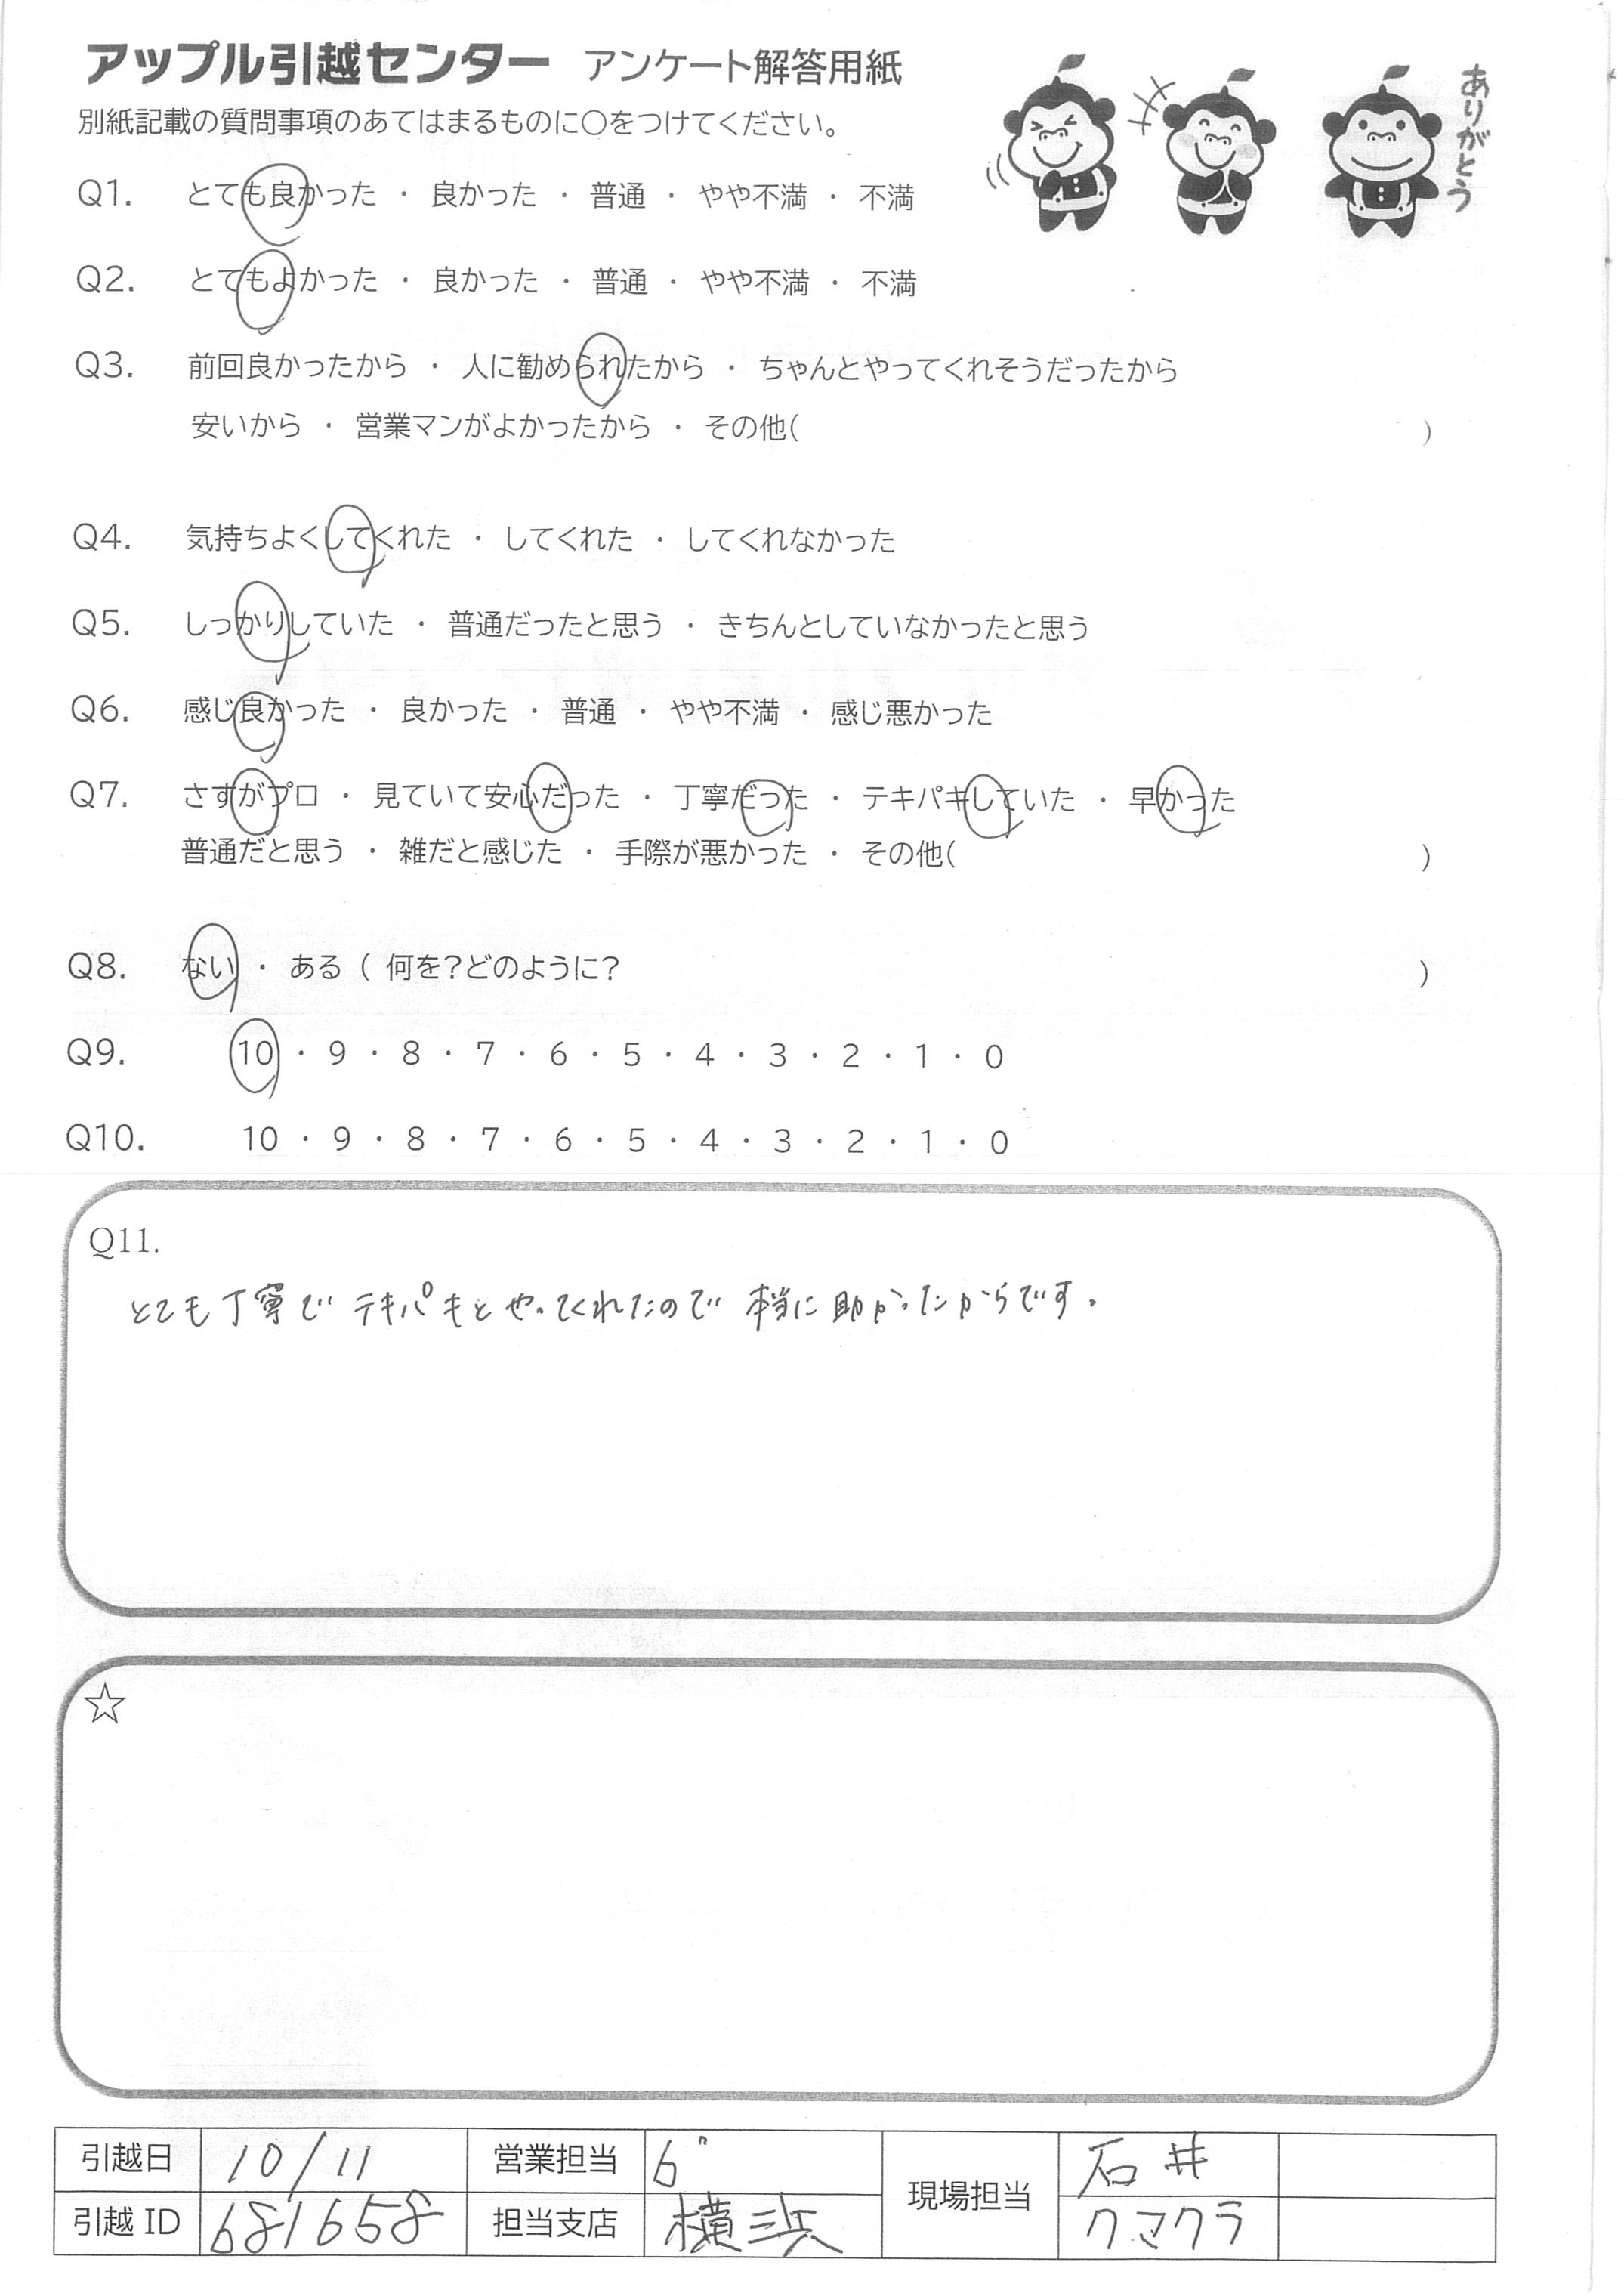 アップル引越センター アンケート解答用紙
別紙記載の質問事項のあてはまるものに○をつけてください。
ありがとう
Q1. とても良かった ・ 良かった ・ 普通 ・ やや不満 ・ 不満
Q2. とてもよかった ・ 良かった ・ 普通 ・ やや不満 ・ 不満
Q3. 前回良かったから ・ 人に勧められたから ・ ちゃんとやってくれそうだったから
安いから ・ 営業マンがよかったから ・ その他( )
Q4. 気持ちよくしてくれた ・ してくれた ・ してくれなかった
Q5. しっかりしていた ・ 普通だったと思う ・ きちんとしていなかったと思う
Q6. 感じ良かった ・ 良かった ・ 普通 ・ やや不満 ・ 感じ悪かった
Q7. さすがプロ ・ 見ていて安心だった ・ 丁寧だった ・ テキパキしていた ・ 早かった
普通だと思う ・ 雑だと感じた ・ 手際が悪かった ・ その他( )
Q8. ない ・ ある ( 何を?どのように? )
Q9. 10 ・ 9 ・ 8 ・ 7 ・ 6 ・ 5 ・ 4 ・ 3 ・ 2 ・ 1 ・ 0
Q10. 10 ・ 9 ・ 8 ・ 7 ・ 6 ・ 5 ・ 4 ・ 3 ・ 2 ・ 1 ・ 0
Q11.
とても丁寧で テキパキとやってくれたので 本当に助かったからです。
☆
引越日 10/11 営業担当 現場担当 石井
引越ID 681658 担当支店 横浜 クマクラ